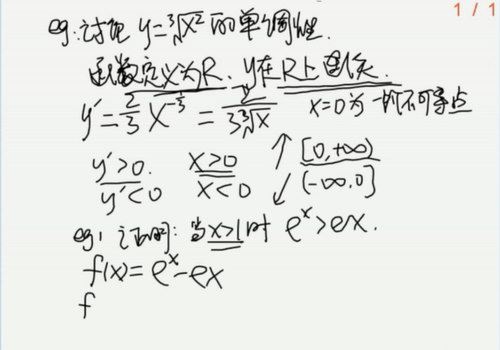 1 / 1
eg:讨论 y=∛x² 的单调性.
函数定义为R. y在R上连续.
y'=2/3 x^(-1/3) = 2/(3∛x) x=0为一个不可导点
y'>0 x>0 ↑ [0,+∞)
y'<0 x<0 ↙ (-∞,0]
eg: 证明: 当x>1时 e^x>ex.
f(x)=e^x-ex
f